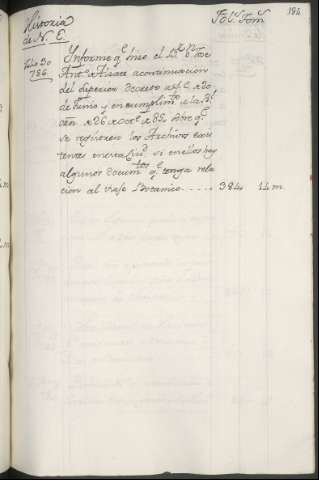 Historia
de N. E.
Fol.s Tom.s
184
Julio 30
786.
Informe q.e hiso el D.r D.n Jose
Ant.o Alzate acontinuacion
del superior Decreto de 20
de Junio y en cumplim.to de la R.l
orn. de 26 de Oct.re de 85. sobre q.e
se registren los Archivos exis
tentes en esta Ciu.d si en ellos hay
algunos Docum.tos q.e tenga rela
cion al viaje Botanico..... 384 14 m